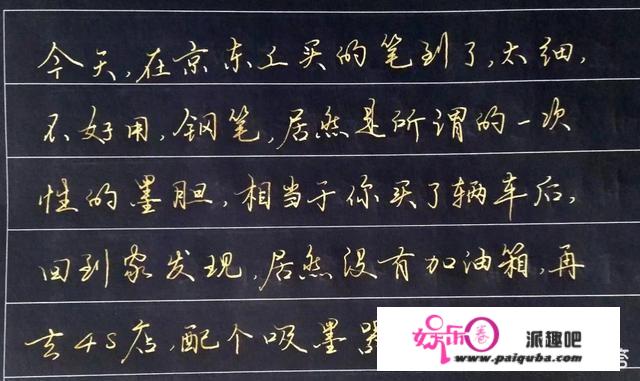 今天,在京东上买的笔到了,太细,
不好用,钢笔,居然是所谓的一次
性的墨胆,相当于你买了辆车后,
回到家发现,居然没有加油箱,再
去4S店,配个吸墨器
娱乐圈 派趣吧
www.paiquba.com